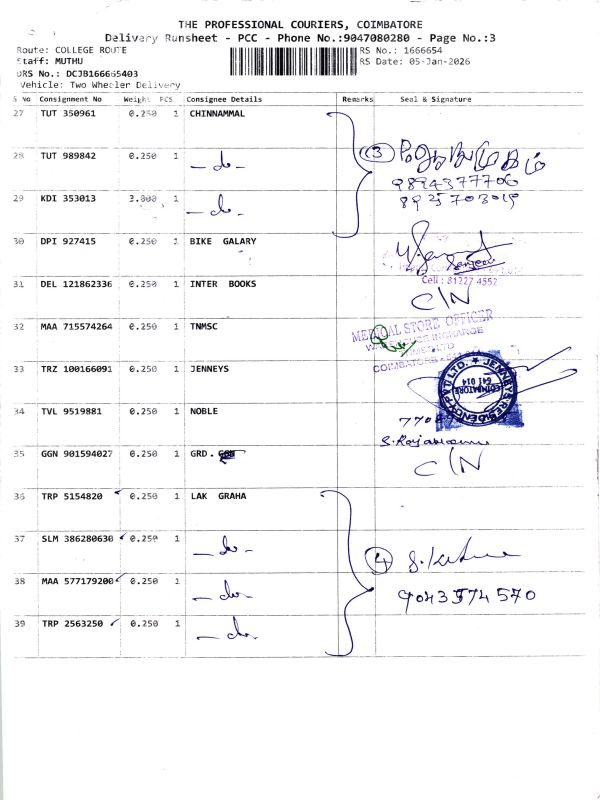 THE PROFESSIONAL COURIERS, COIMBATORE
Delivery Runsheet - PCC - Phone No.:9047080280 - Page No.:3
Route: COLLEGE ROUTE
RS No.: 1666654
Staff: MUTHU
RS Date: 05-Jan-2026
DRS No.: DCJB166665403
Vehicle: Two Wheeler Delivery
S No Consignment No Weight PCS Consignee Details Remarks Seal & Signature
27 TUT 350961 0.250 1 CHINNAMMAL
28 TUT 989842 0.250 1 - do -
(3)
9894377706
29 KDI 353013 3.000 1 - do -
30 DPI 927415 0.250 1 BIKE GALARY
Cell : 81227 4552
31 DEL 121862336 0.250 1 INTER BOOKS C/N
32 MAA 715574264 0.250 1 TNMSC
MEDICAL STORE OFFICER
COIMBATORE
33 TRZ 100166091 0.250 1 JENNEYS
JENNEYS RESIDENCY PVT LTD. ★
COIMBATORE
641 014
34 TVL 9519881 0.250 1 NOBLE
35 GGN 901594027 0.250 1 GRD. C/N
36 TRP 5154820 0.250 1 LAK GRAHA
37 SLM 386280630 0.250 1 - do -
(4)
38 MAA 577179200 0.250 1 - do -
9043574570
39 TRP 2563250 0.250 1 - do -